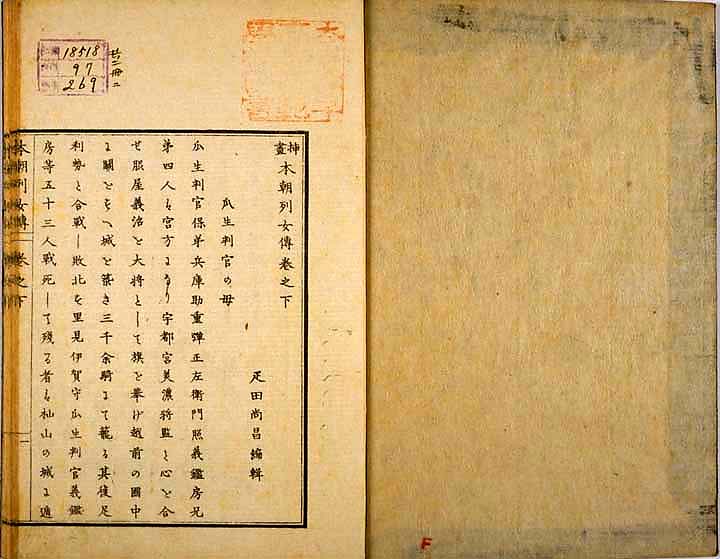 挿畫 本朝列女傳卷之下
疋田尚昌編輯
瓜生判官の母
瓜生判官保弟兵庫助重彈正左衛門照義鑑房兄
弟四人も宮方になり宇都宮美濃將監と心と合
せ脇屋義治と大将として旗と挙げ越前の國中
に関とすへ城と築き三千余騎にて籠る其後足
利勢と合戦し敗北を里見伊賀守瓜生判官義鑑
房等五十三人戦死して残る者も杣山の城に遁
本朝列女傳 卷之下
一
18518
97
269
廿一冊ニ
F